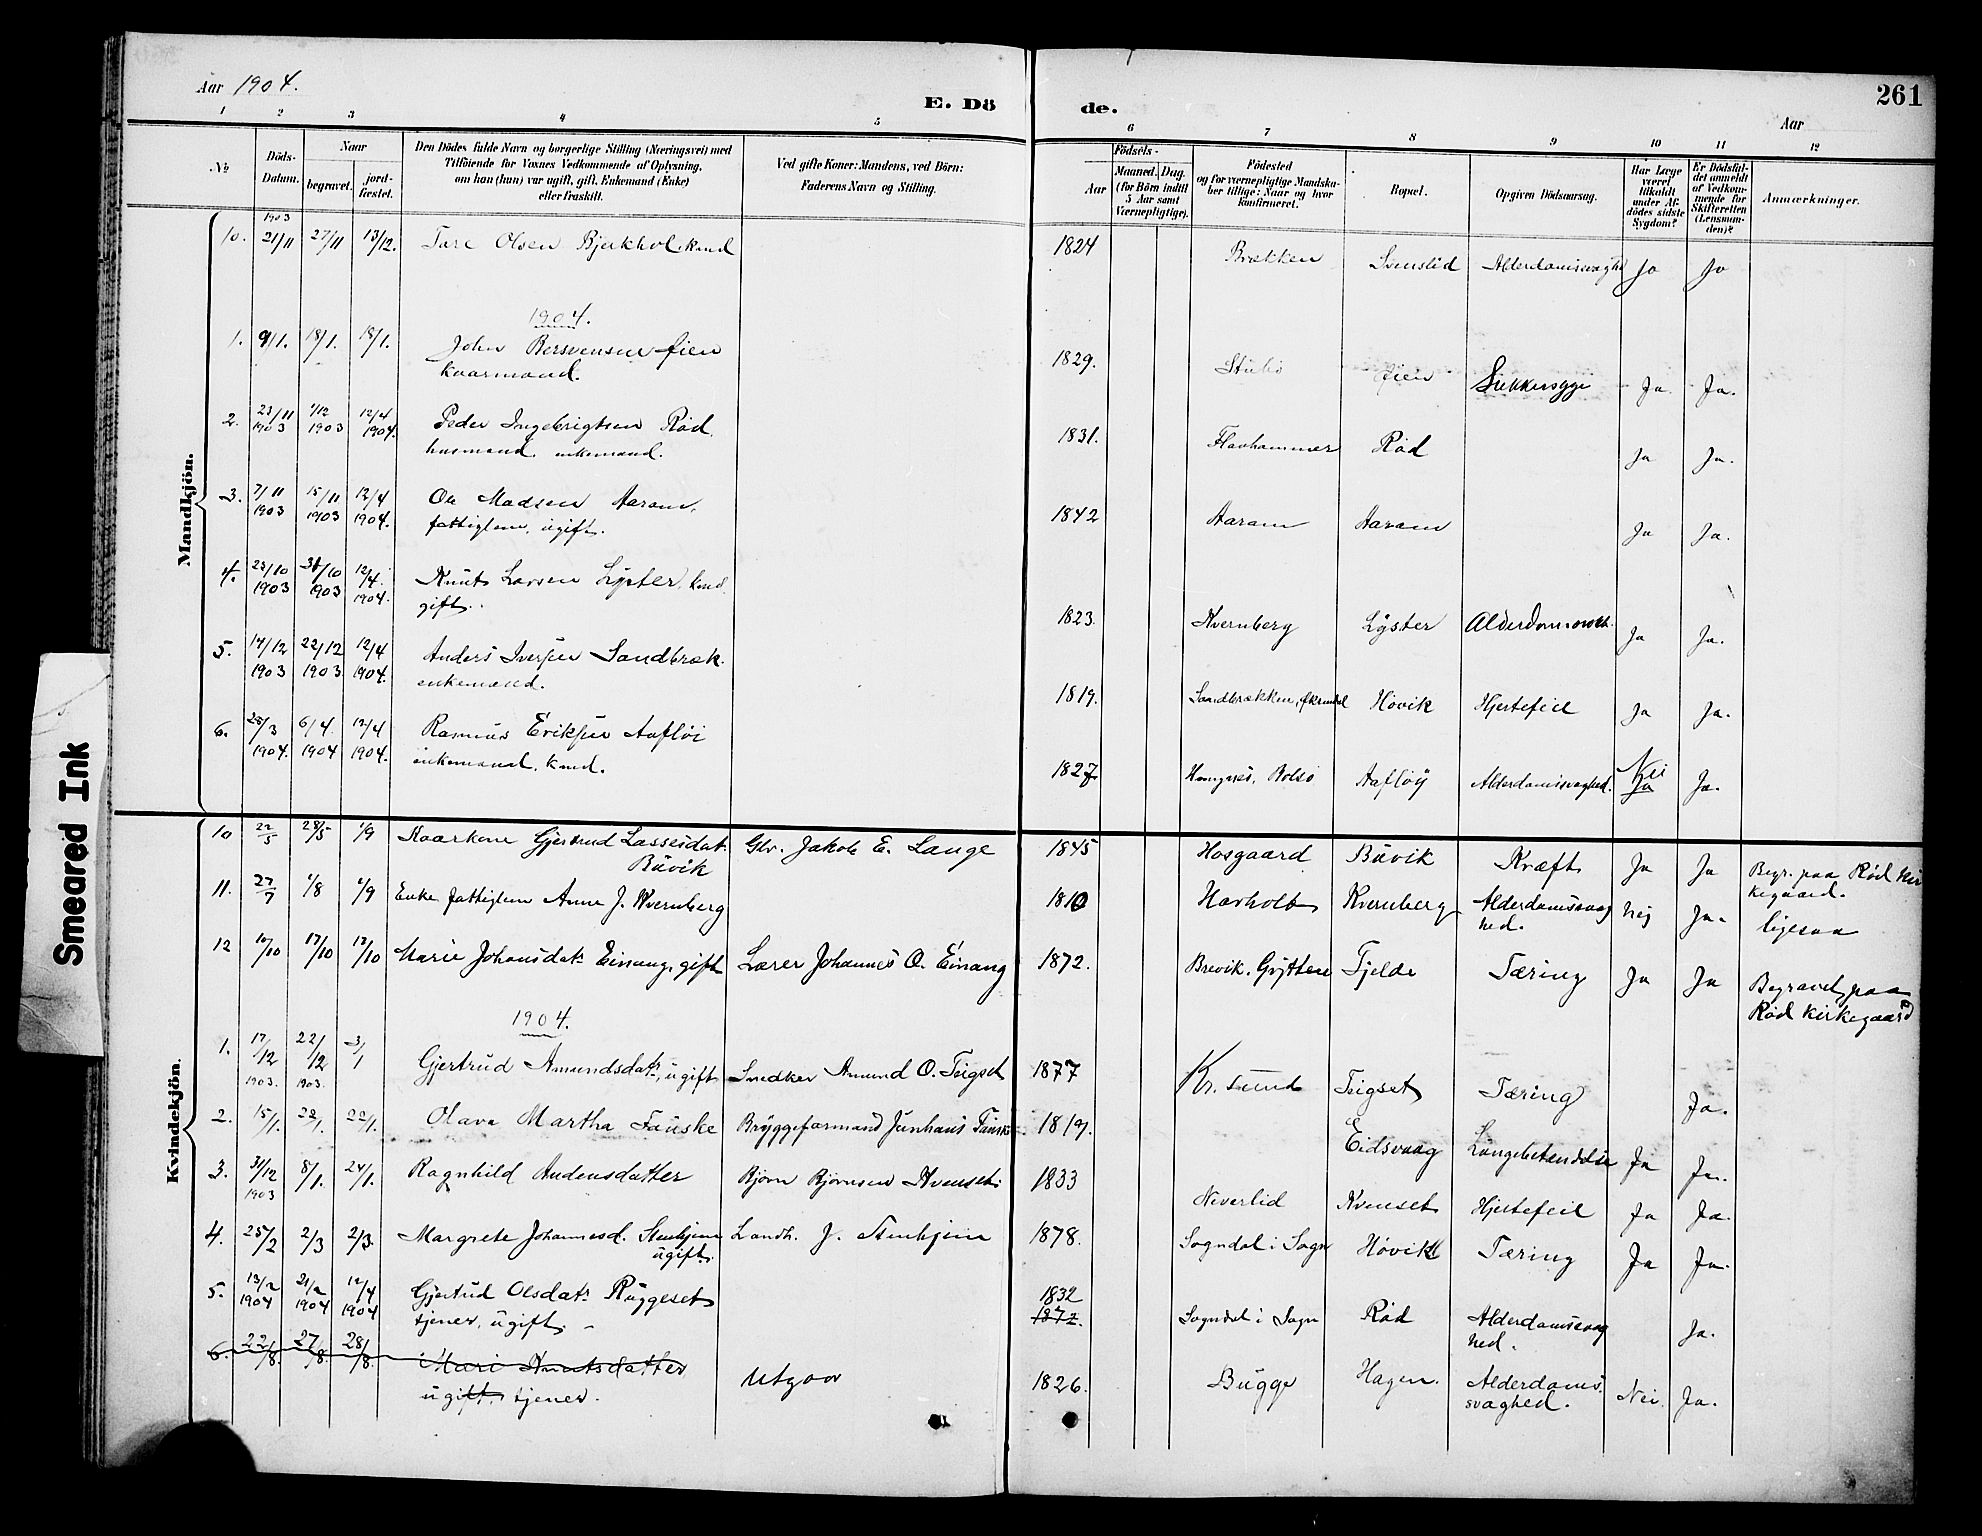 Aar 1904.
E. Dö de.
261
Aar
1 2 3 4 5 6 7 8 9 10 11 12
No
Döds-Datum.
Naar
begravet.
jord-fæstet.
Den Dödes fulde Navn og borgerlige Stilling (Næringsvei) med
Tilföiende for Voxnes Vedkommende af Oplysning,
om han (hun) var ugift, gift, Enkemand (Enke)
eller fraskilt.
Ved gifte Koner: Mandens, ved Börn:
Faderens Navn og Stilling.
Födsels-
Aar
Maaned. Dag.
(for Börn indtil
5 Aar samt
Værnepligtige).
Födested
og for værnepligtige Mandska-
ber tillige: Naar og hvor
konfirmeret.
Bopæl.
Opgiven Dödsaarsag.
Har Læge
været
tilkaldt
under Af-
dödes sidste
Sygdom?
Er Dödsfal-
det anmeldt
af Vedkom-
mende for
Skifteretten
(Lensman-
den)?
Anmærkninger.
Mandkjön.
10. 1903 21/11 27/11 13/12. Tore Olsen Bjerkhol. kmd 1824 Brækken Svenslid Alderdomssvaghd Ja Ja
1904.
1. 9/1. 18/1. 18/1. John Bersvensen Øien
kaarmand. 1829. Stubø Øien Sukkersyge Ja. Ja.
2. 23/11 1903 1/12 1903 12/4 1904. Peder Ingebrigtsen Rød.
husmand, enkemand. 1831. Flaahammer Rød Ja Ja.
3. 7/11 1903 15/11 1903 12/4 1904. Ole Madsen Aaram,
fattiglem, ugift. 1842 Aaram Aaram Ja Ja.
4. 23/10 1903 31/10 1903 12/4 1904. Knut Larsen Lyster, kmd.
gift. 1823. Kvernberg Lyster Ja Ja.
5. 14/12 1903 22/12 1903 12/4 1904. Anders Iversen Sandbræk.
enkemand. 1819. Sandbrækken, Økrendal Høvik Hjertefeil Ja Ja.
6. 28/3 1904. 6/4. 1904 12/4 1904. Rasmus Eriksen Aafløi
enkemand, kmd. 1827 Bolsø Aafløy Alderdomssvaghed. Nei Ja Ja.
Kvindekjön.
10 22/5 28/5 1/9 Kaarkone Gjertrud Lassesdat.
Buvik Glv. Jakob E. Lange 1845 Hosgaard Buvik Kræft Ja Ja Begr. paa Rød kir
kegaard.
11. 27/7 1/8 1/9 Enke fattiglem Anne J. Kvernberg 1810 Havholt Kvernberg Alderdomssvag
hed. Nej Ja. ligesaa
12 10/10 17/10 17/10 Marie Johansdatr Einang, gift Lærer Johannes O. Einang 1872. Brevik, Grytten Tjelde Tæring Ja Ja Begravet paa
Rød kirkegaard
1904.
1. 17/12 1903. 22/12 1903. 3/1 Gjertrud Amundsdatr, ugift Snedker Amund O. Teigset 1877 Kr. sund Teigset Tæring Ja.
2. 15/1. 22/1. 22/1. Olava Martha Fauske Bryggeformand Junhans Fausk 1819. Eidsvaag Lungebetændelse Ja Ja.
3. 31/12 1903 8/1. 24/1. Ragnhild Andensdatter Bjørn Bjørnsen Kvenset 1833 Neverlid Kvenset Hjertefeil Ja Ja.
4. 25/2 2/3 2/3 Margrete Johannesd. Stenhjem
ugift. Landh. J. Stenhjem 1878. Sogndal i Sogn Høvik Tæring Ja Ja.
5. 13/2 1904 21/2 1904 12/4 1904 Gjertrud Olsdatr Ruggeset
tjener, ugift. 1832
1872. Sogndal i Sogn Rød Alderdomssvag
hed. Ja.
6. 22/8. 27/8. 28/8. Mari Knutsdatter
ugift, tjener. Utgaar 1826. Bugge Hagen. Alderdoms.
svaghed. Nei. Ja.
Smeared Ink